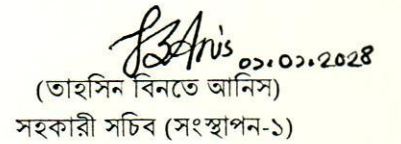 ০১.০১.২০২৪
(তাহসিন বিনতে আনিস)
সহকারী সচিব (সংস্থাপন-১)